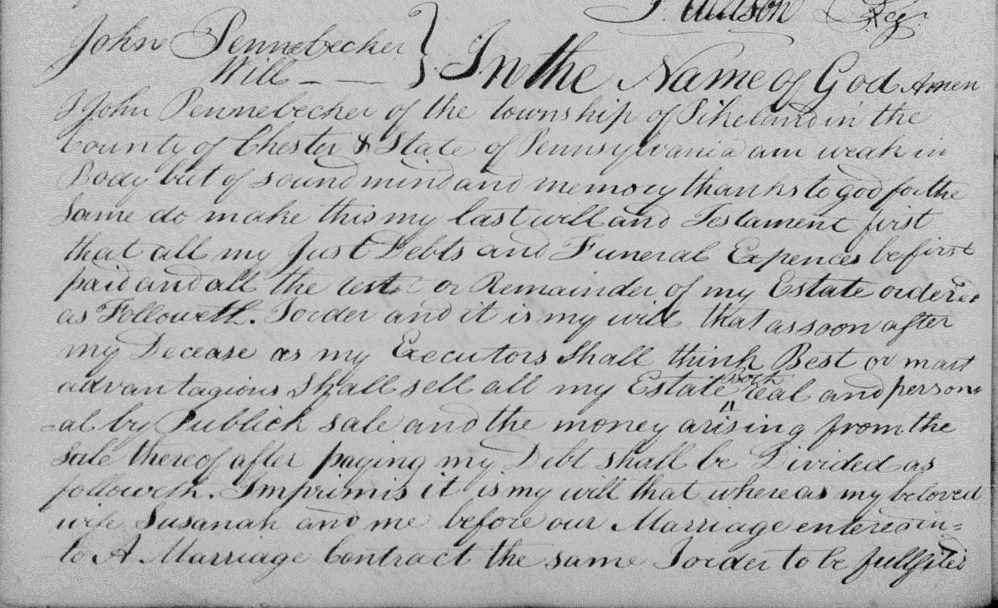 J. Wilson Reg
John Pennebecker
Will
In the Name of God Amen
I John Pennebecker of the township of Pikeland in the
County of Chester & State of Pennsylvania am weak in
Body but of sound mind and memory thanks to god for the
Same do make this my last will and Testament first
that all my Just Debts and Funeral Expences be first
paid and all the rest or Remainder of my Estate ordered
as Followeth. I order and it is my will that as soon after
my Decease as my Executors Shall think Best or most
advantagious Shall sell all my Estate both real and person
-al by Publick sale and the money arising from the
Sale thereof after paying my Debt shall be Divided as
followeth. Imprimis it is my will that whereas my beloved
wife Susanah and me before our Marriage entered in=
to A Marriage Contract the same I order to be fullfiled